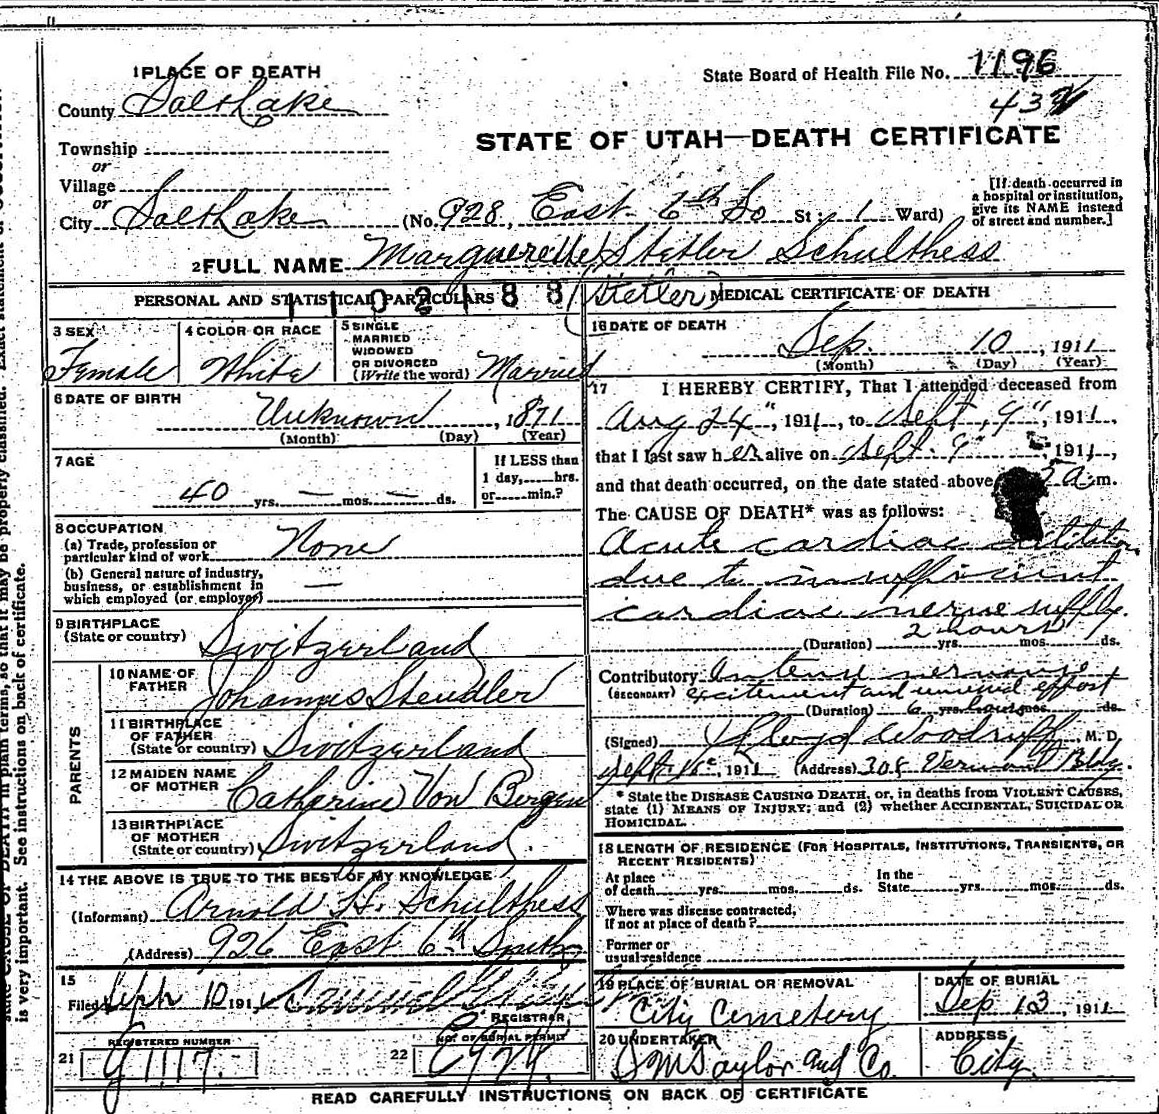 1 PLACE OF DEATH
State Board of Health File No. 1196
County Salt Lake
STATE OF UTAH—DEATH CERTIFICATE
Township
or
Village
or
City Salt Lake (No. 928, East 6th So St; 1 Ward)
[If death occurred in a hospital or institution, give its NAME instead of street and number.]
2 FULL NAME Marguerette Stetler Schulthess
(Stetler)
1102188
PERSONAL AND STATISTICAL PARTICULARS
3 SEX Female
4 COLOR OR RACE White
5 SINGLE MARRIED WIDOWED OR DIVORCED (Write the word) Married
6 DATE OF BIRTH Unknown, 1871
(Month) (Day) (Year)
7 AGE 40 yrs. — mos. — ds.
If LESS than 1 day,......hrs. or......min.?
8 OCCUPATION
(a) Trade, profession or particular kind of work None
(b) General nature of industry, business, or establishment in which employed (or employer) —
9 BIRTHPLACE (State or country) Switzerland
PARENTS
10 NAME OF FATHER Johannes Steudler
11 BIRTHPLACE OF FATHER (State or country) Switzerland
12 MAIDEN NAME OF MOTHER Catharine Von Bergen
13 BIRTHPLACE OF MOTHER (State or country) Switzerland.
14 THE ABOVE IS TRUE TO THE BEST OF MY KNOWLEDGE
(Informant) Arnold H. Schulthess
(Address) 926 East 6th South
15
Filed Sept 10 191
REGISTRAR
21 REGISTERED NUMBER
22 NO. OF BURIAL PERMIT
MEDICAL CERTIFICATE OF DEATH
16 DATE OF DEATH
Sep. 10, 1911
(Month) (Day) (Year)
17 I HEREBY CERTIFY, That I attended deceased from
Aug 24", 1911, to Sept, 9", 1911,
that I last saw her alive on Sept. 9", 1911,
and that death occurred, on the date stated above a. m.
The CAUSE OF DEATH* was as follows:
Acute cardiac
due to insufficient
cardiac nerve supply.
(Duration) 2 hours yrs. mos. ds.
Contributory Intense nervous
(SECONDARY) excitement and unusual effort
(Duration) 6 yrs. hours mos. ds.
(Signed) Lloyd Woodruff M. D.
Sept. 1911 (Address) 308 Vermont Bldg.
* State the DISEASE CAUSING DEATH, or, in deaths from VIOLENT CAUSES, state (1) MEANS OF INJURY; and (2) whether ACCIDENTAL, SUICIDAL OR HOMICIDAL.
18 LENGTH OF RESIDENCE (FOR HOSPITALS, INSTITUTIONS, TRANSIENTS, OR RECENT RESIDENTS)
At place of death yrs. mos. ds. In the State yrs. mos. ds.
Where was disease contracted, if not at place of death?
Former or usual residence
19 PLACE OF BURIAL OR REMOVAL City Cemetery
DATE OF BURIAL Sep 13, 1911
20 UNDERTAKER S M Taylor and Co.
ADDRESS City.
READ CAREFULLY INSTRUCTIONS ON BACK OF CERTIFICATE
is very important. See instructions on back of certificate.